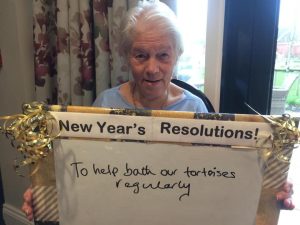 New Year's Resolutions!
To help bath our tortoises
regularly